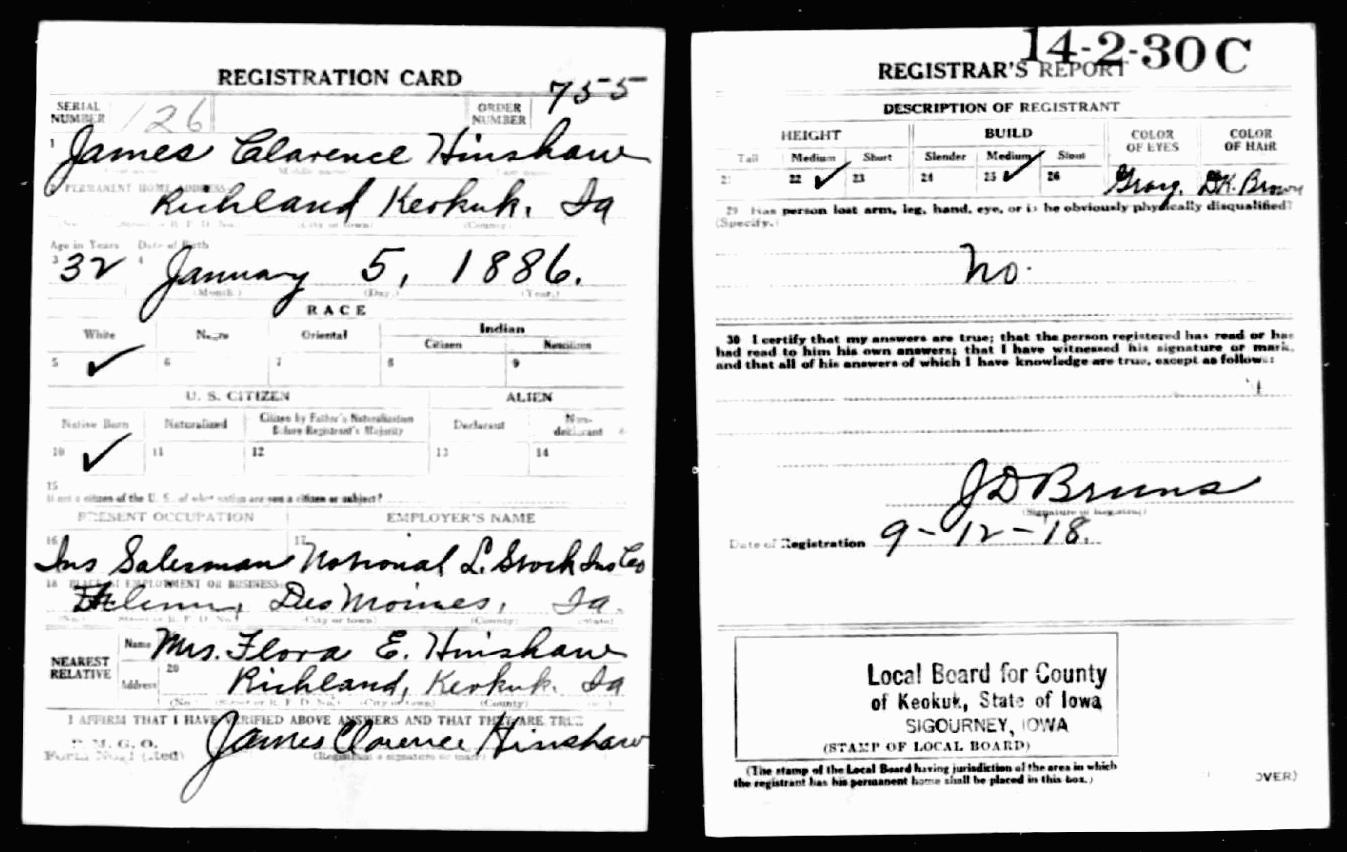 REGISTRATION CARD
SERIAL NUMBER 126 ORDER NUMBER 755
1 James Clarence Hinshaw
PERMANENT HOME ADDRESS
Richland Keokuk. Ia
(No.) (Street or R. F. D. No.) (City or town) (County)
Age in Years Date of Birth
3 32 4 January 5, 1886.
(Month.) (Day.) (Year.)
RACE
White Negro Oriental Indian
Citizen Noncitizen
5 ✓ 6 7 8 9
U. S. CITIZEN ALIEN
Native Born Naturalized Citizen by Father's Naturalization Before Registrant's Majority Declarant Non-declarant
10 ✓ 11 12 13 14
15
If not a citizen of the U. S., of what nation are you a citizen or subject?
PRESENT OCCUPATION EMPLOYER'S NAME
16 Ins Salesman 17 National L. Stock Ins Co
18 PLACE OF EMPLOYMENT OR BUSINESS
Des Moines, Ia.
(No.) (Street or R. F. D. No.) (City or town) (County) (State)
NEAREST RELATIVE
Name Mrs. Flora E. Hinshaw
Address 20 Richland, Keokuk. Ia
(No.) (Street or R. F. D. No.) (City or town) (County)
I AFFIRM THAT I HAVE VERIFIED ABOVE ANSWERS AND THAT THEY ARE TRUE
P. M. G. O.
Form No. 1 (Red) James Clarence Hinshaw
(Registrant's signature or mark)
14-2-30 C
REGISTRAR'S REPORT
DESCRIPTION OF REGISTRANT
HEIGHT BUILD COLOR OF EYES COLOR OF HAIR
Tall Medium Short Slender Medium Stout
21 22 ✓ 23 24 25 ✓ 26 Gray. DK. Brown
29 Has person lost arm, leg, hand, eye, or is he obviously physically disqualified?
(Specify.)
No.
30 I certify that my answers are true; that the person registered has read or has
had read to him his own answers; that I have witnessed his signature or mark,
and that all of his answers of which I have knowledge are true, except as follows:
J D Bruns
(Signature of Registrar)
Date of Registration 9-12-18.
Local Board for County
of Keokuk, State of Iowa
SIGOURNEY, IOWA
(STAMP OF LOCAL BOARD)
(The stamp of the Local Board having jurisdiction of the area in which
the registrant has his permanent home shall be placed in this box.)
OVER)